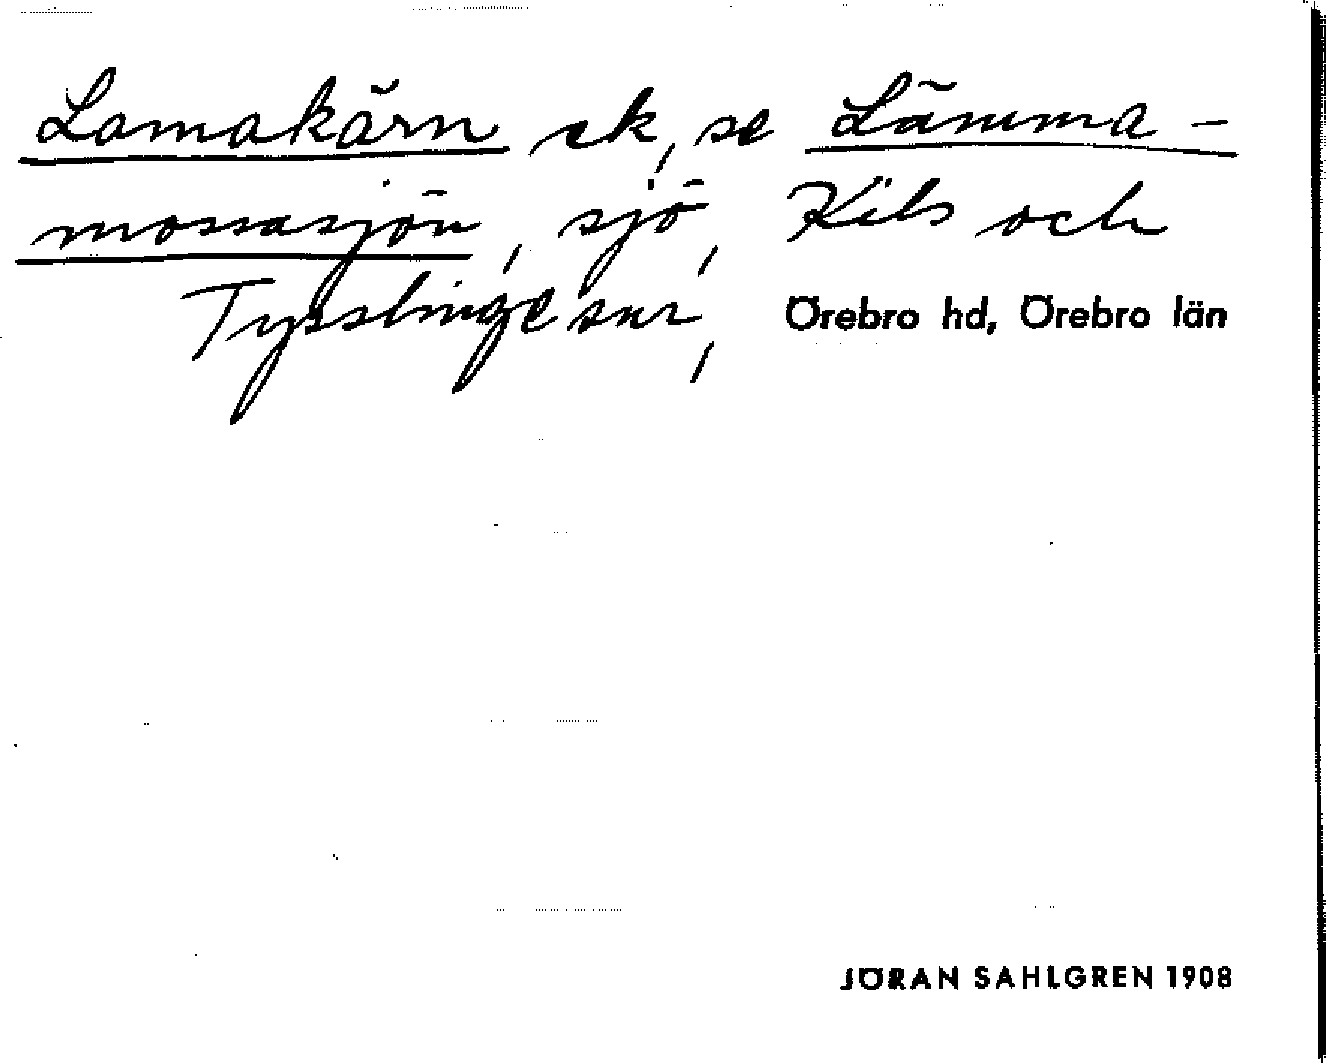 Lamakärn ek, se Lämma-
mossasjön, sjö, Kils och
Tysslinge snr, Örebro hd, Örebro län
JÖRAN SAHLGREN 1908